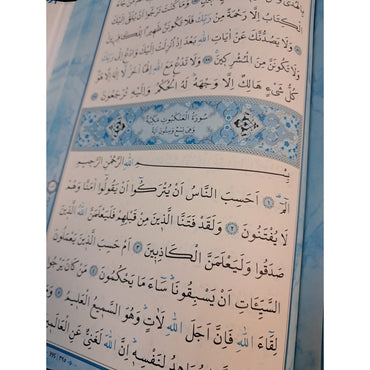 وَمَا كُنْتَ تَرْجُٓوا
الْكِتَابُ اِلَّا رَحْمَةً مِنْ رَبِّكَ فَلَا تَكُونَنَّ ظَهِيرًا لِلْكَافِرِينَ
﴿٨٦﴾ وَلَا يَصُدُّنَّكَ عَنْ اٰيَاتِ اللّٰهِ بَعْدَ اِذْ اُنْزِلَتْ اِلَيْكَ وَادْعُ اِلٰى
وَلَا تَكُونَنَّ مِنَ الْمُشْرِكِينَ ﴿٨٧﴾ وَلَا تَدْعُ مَعَ اللّٰهِ اِلٰهًا اٰخَرَ لَٓا اِلٰهَ اِلَّا هُوَ
كُلُّ شَيْءٍ هَالِكٌ اِلَّا وَجْهَهُ لَهُ الْحُكْمُ وَاِلَيْهِ تُرْجَعُونَ ﴿٨٨﴾
سُورَةُ الْعَنْكَبُوتِ مَكِّيَّةٌ
وَهِيَ تِسْعٌ وَسِتُّونَ اٰيَةً
بِسْمِ اللّٰهِ الرَّحْمٰنِ الرَّحِيمِ
الٓمٓ ﴿١﴾ اَحَسِبَ النَّاسُ اَنْ يُتْرَكُٓوا اَنْ يَقُولُٓوا اٰمَنَّا وَهُمْ
لَا يُفْتَنُونَ ﴿٢﴾ وَلَقَدْ فَتَنَّا الَّذِينَ مِنْ قَبْلِهِمْ فَلَيَعْلَمَنَّ اللّٰهُ الَّذِينَ
صَدَقُوا وَلَيَعْلَمَنَّ الْكَاذِبِينَ ﴿٣﴾ اَمْ حَسِبَ الَّذِينَ يَعْمَلُونَ
السَّيِّـَٔاتِ اَنْ يَسْبِقُونَا سَٓاءَ مَا يَحْكُمُونَ ﴿٤﴾ مَنْ كَانَ يَرْجُوا
لِقَٓاءَ اللّٰهِ فَاِنَّ اَجَلَ اللّٰهِ لَاٰتٍ وَهُوَ السَّمِيعُ الْعَلِيمُ ﴿٥﴾
يُجَاهِدُ لِنَفْسِهِ اِنَّ اللّٰهَ لَغَنِيٌّ عَنِ الْعَالَمِينَ